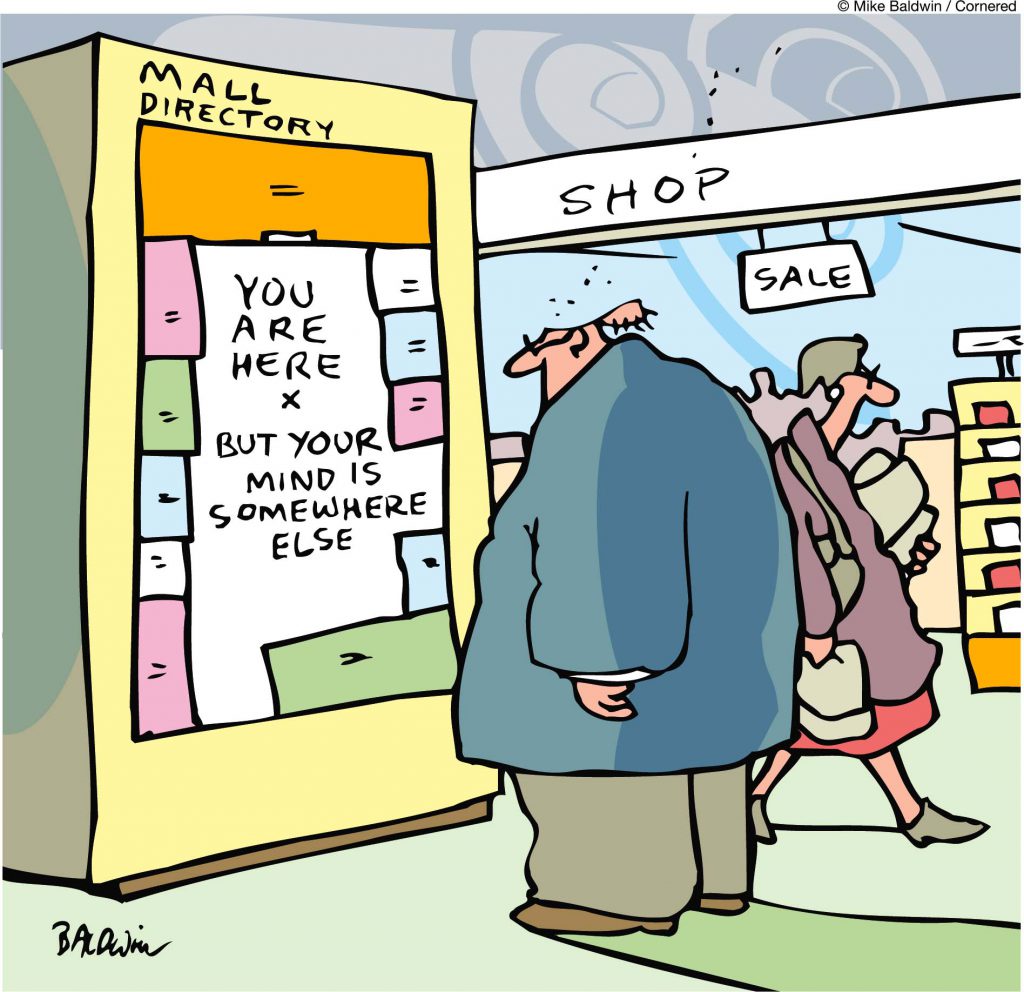 © Mike Baldwin / Cornered
MALL
DIRECTORY
YOU
ARE
HERE
x
BUT YOUR
MIND IS
SOMEWHERE
ELSE
SHOP
SALE
BALDWIN